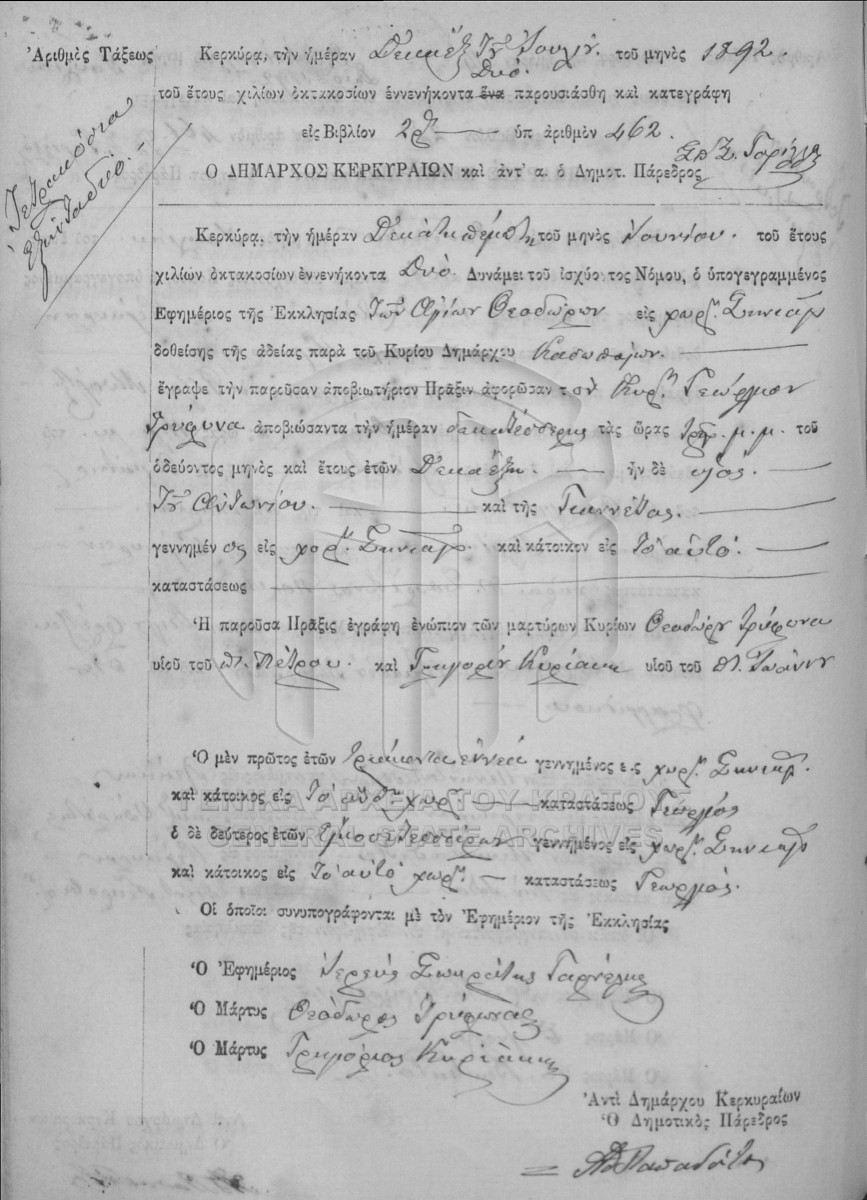 Ἀριθμὸς Τάξεως
Τετρακόσια
ἑξῆντα δύο.
Κερκύρᾳ, τὴν ἡμέραν Δέκα ἓξ Ἰουλίου τοῦ μηνὸς 1892.
Δύο.
τοῦ ἔτους χιλίων ὀκτακοσίων ἐννενήκοντα ἕνα παρουσιάσθη καὶ κατεγράφη
εἰς Βιβλίον 2ον ὑπ ἀριθμὸν 462.
Ο ΔΗΜΑΡΧΟΣ ΚΕΡΚΥΡΑΙΩΝ καὶ ἀντ' α. ὁ Δημοτ. Πάρεδρος
Κερκύρᾳ, τὴν ἡμέραν Δεκάτη πέμπτη τοῦ μηνὸς Ἰουνίου. τοῦ ἔτους
χιλίων ὀκτακοσίων ἐννενήκοντα Δυό. Δυνάμει τοῦ ἰσχύο τος Νόμου, ὁ ὑπογεγραμμένος
Ἐφημέριος τῆς Ἐκκλησίας Τῶν Ἁγίων Θεοδώρων εἰς χωρ. Σινιὲς
δοθείσης τῆς ἀδείας παρὰ τοῦ Κυρίου Δημάρχου Κασωπαίων.
ἔγραψε τὴν παροῦσαν ἀποβιωτήριον Πρᾶξιν ἀφορῶσαν τὸν Κύρ. Γεώργιον
Τρύφωνα ἀποβιώσαντα τὴν ἡμέραν δεκατέσσερις τὰς ὥρας τρεῖς μ.μ. τοῦ
ὁδεύοντος μηνὸς καὶ ἔτους ἐτῶν Δέκα ἕξη. ἦν δὲ υἱὸς.
Τοῦ Ἀντωνίου. καὶ τῆς Γιαννέτας.
γεννημέν ος εἰς χωρ. Σινιὲς. καὶ κάτοικον εἰς Τὸ αὐτό.
καταστάσεως
Ἡ παροῦσα Πρᾶξις ἐγράφη ἐνώπιον τῶν μαρτύρων Κυρίων Θεοδώρου Τρύφωνα
υἱοῦ τοῦ π. Πέτρου. καὶ Γρηγορίου Κυριάκη υἱοῦ τοῦ π. Ἰωάννου
Ὁ μὲν πρῶτος ἐτῶν τριάκοντα ἐννέα γεννημένος εἰς χωρ. Σινιὲς.
καὶ κάτοικος εἰς Τὸ αὐτὸ χωρ. καταστάσεως Γεωργὸς
ὁ δὲ δεύτερος ἐτῶν Εἴκοσι τεσσάρων γεννημένος εἰς χωρ. Σινιὲς
καὶ κάτοικος εἰς Τὸ αὐτὸ χωρ. καταστάσεως Γεωργός.
Οἱ ὁποῖοι συνυπογράφονται μὲ τὸν Ἐφημέριον τῆς Ἐκκλησίας
Ὁ Ἐφημέριος Ἱερεὺς Σωκράτης
Ὁ Μάρτυς Θεόδωρος Τρύφωνας
Ὁ Μάρτυς Γρηγόριος Κυριάκης
Ἀντὶ Δημάρχου Κερκυραίων
Ὁ Δημοτικὸς Πάρεδρος
ΓΕΝΙΚΑ ΑΡΧΕΙΑ ΤΟΥ ΚΡΑΤΟΥΣ
GENERAL STATE ARCHIVES